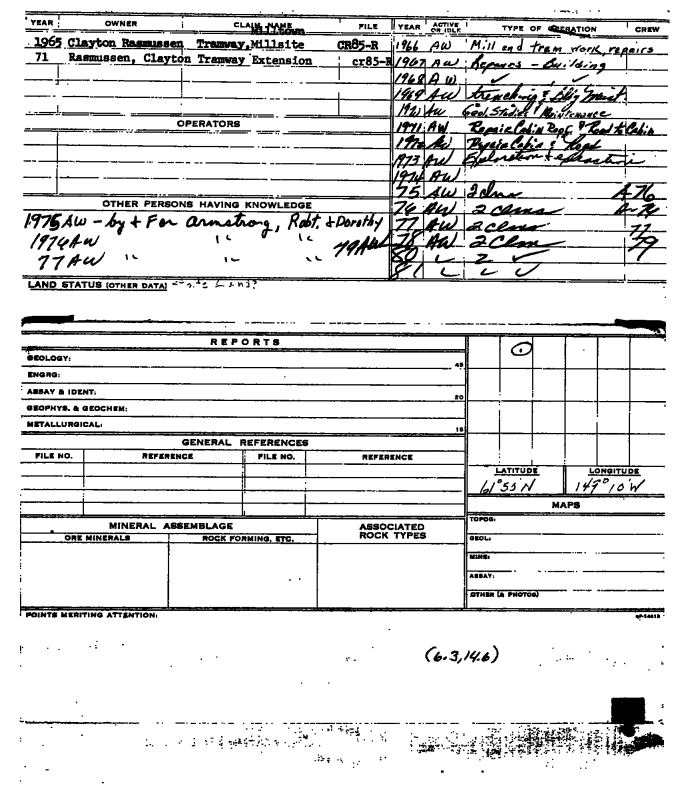 YEAR OWNER CLAIM NAME FILE YEAR ACTIVE OR IDLE TYPE OF OPERATION CREW
Milltown
1965 Clayton Rasmussen Tramway, Millsite CR85-R 1966 AW Mill and tram work, repairs
71 Rasmussen, Clayton Tramway Extension cr85-R 1967 AW Repairs - Building
1968 AW ✓ ✓
1969 AW Trenching & Bldg Maint.
1970 AW Geol. Studies Maintenance
OPERATORS 1971 AW Repair Cabin Rept. & Road to Cabin
1972 AW Repair Cabin & Rept
1973 AW Exploration &
1974 AW
75 AW 2 clms A-76
OTHER PERSONS HAVING KNOWLEDGE 76 AW 2 clms A-76
1975 AW - by & For Armstrong, Robt. & Dorothy 77 AW 2 clms 77
1976 AW " " 79 AW 78 AW 2 Clm 79
77 AW " " 80 " 2 ✓
81
LAND STATUS (OTHER DATA)
REPORTS
GEOLOGY: 45
ENGRG:
ASSAY & IDENT: 20
GEOPHYS. & GEOCHEM:
METALLURGICAL: 15
GENERAL REFERENCES
FILE NO. REFERENCE FILE NO. REFERENCE
LATITUDE LONGITUDE
61°55'N 149°10'W
MAPS
MINERAL ASSEMBLAGE ASSOCIATED ROCK TYPES TOPOG:
ORE MINERALS ROCK FORMING, ETC. GEOL:
MINE:
ASSAY:
OTHER (& PHOTOS)
POINTS MERITING ATTENTION:
(6.3,14.6)